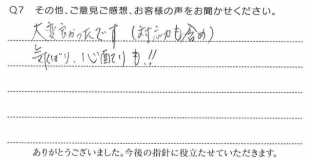 Q7 その他、ご意見ご感想、お客様の声をお聞かせください。
大変良かったです（対応も含め）
気くばり、心配りも!!
ありがとうございました。今後の指針に役立たせていただきます。